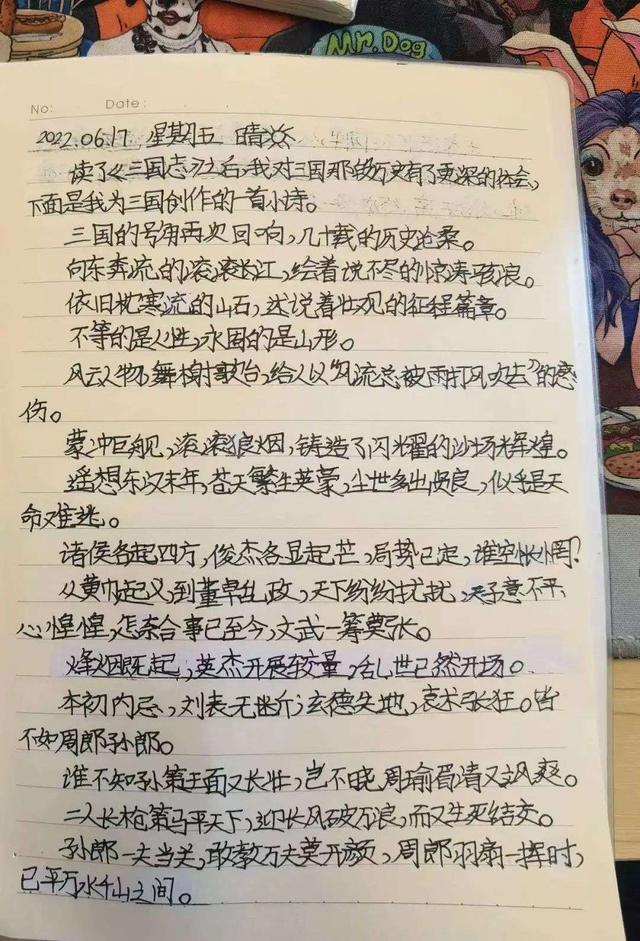 Mr. Dog
No:
Date:
2022.06.17 星期五 晴
读了《三国志》之后,我对三国那段历史有了更深的体会,
下面是我为三国创作的一首小诗。
三国的号角再次回响,几十载的历史沧桑。
向东奔流的滚滚长江,绘着说不尽的惊涛骇浪。
依旧枕寒流的山石,述说着壮观的征程篇章。
不等的是人性,永固的是山形。
风云人物,舞榭歌台,给人以“风流总被雨打风吹去”的感
伤。
蒙冲巨舰,滚滚狼烟,铸造了闪耀的沙场辉煌。
遥想东汉末年,苍天繁生英豪,尘世多出贤良,似乎是天
命难逃。
诸侯各起四方,俊杰各显起芒,局势已定,谁空怅惘?
从黄巾起义,到董卓乱政,天下纷纷扰扰,天子意不平,
心惶惶,怎奈合事已至今,文武一筹莫张。
烽烟既起,英杰开展较量,乱世已然开场。
本初内忌,刘表无断,玄德失地,袁术张狂。皆
不如周郎孙郎。
谁不知孙策王面又长壮,岂不晓周瑜眉清又飒爽。
二人长枪策马平天下,迎长风破万浪,而又生死结交。
孙郎一夫当关,敢教万夫莫开颜,周郎羽扇一挥时,
已平万水千山之间。